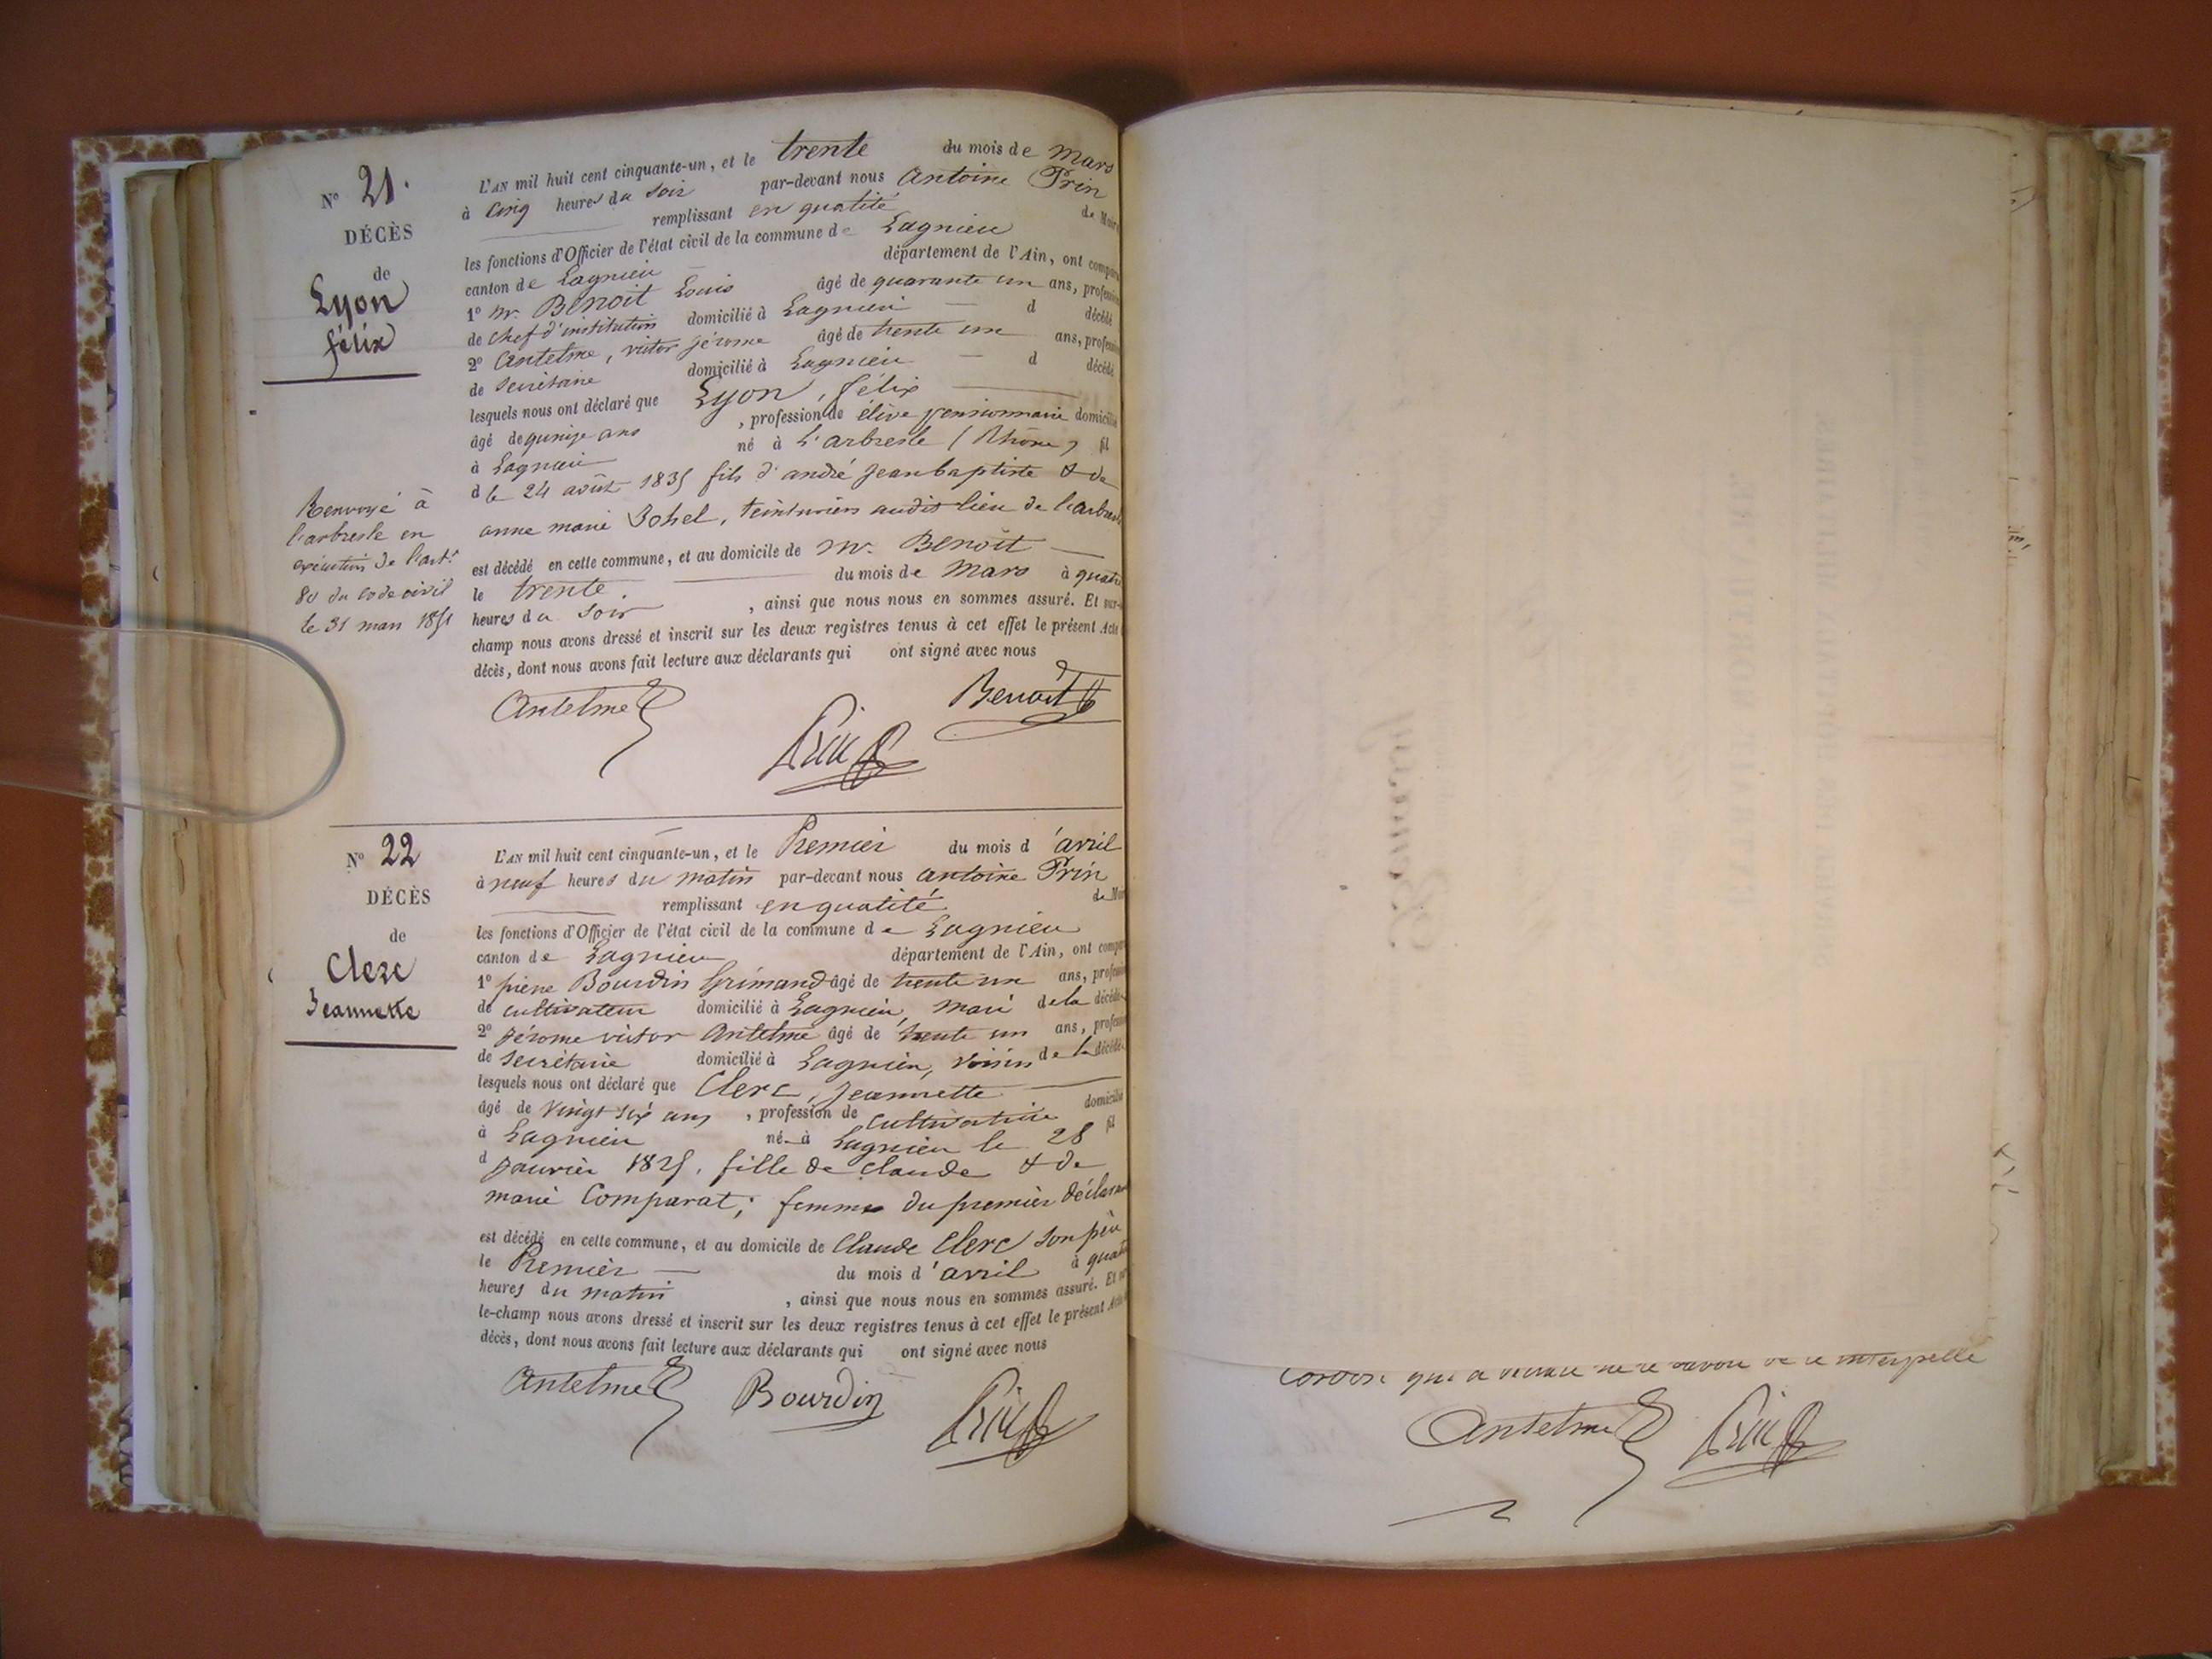 N° 21.
DÉCÈS
de
Lyon
félix
L'AN mil huit cent cinquante-un, et le trente du mois de Mars
à cinq heures du soir par-devant nous Antoine Prin
remplissant en qualité de Maire
les fonctions d'Officier de l'état civil de la commune de Lagnieu
canton de Lagnieu département de l'Ain, ont comparu
1° Mr. Benoit Louis âgé de quarante un ans, profession
de chef d'institution domicilié à Lagnieu — d décédé
2° Antelme, victor jérome âgé de trente un ans, profession
de secrétaire domicilié à Lagnieu — d décédé
lesquels nous ont déclaré que Lyon, félix
âgé de quinze ans , profession de élève pensionnaire domicilié
à Lagnieu né à L'arbresle (Rhône) fil
d le 24 août 1835 fils d'andré jean baptiste & de
anne marie , teinturiers audit lieu de L'arbresle
est décédé en cette commune, et au domicile de Mr. Benoit —
le trente. du mois de Mars à quatre
heures du soir , ainsi que nous nous en sommes assuré. Et sur-
champ nous avons dressé et inscrit sur les deux registres tenus à cet effet le présent Acte
décès, dont nous avons fait lecture aux déclarants qui ont signé avec nous
Renvoyé à
l'arbresle en
exécution de l'art.
80 du code civil
le 31 mars 1851
Antelme Prin Benoit
N° 22
DÉCÈS
de
Clerc
Jeannette
L'AN mil huit cent cinquante-un, et le Premier du mois d'avril
à neuf heures du matin par-devant nous antoine Prin
remplissant en qualité de Mai
les fonctions d'Officier de l'état civil de la commune de Lagnieu
canton de Lagnieu département de l'Ain, ont comparu
1° pierre Bourdin Grimand âgé de trente un ans, profession
de cultivateur domicilié à Lagnieu, mari de la décédée
2° Jérome victor Antelme âgé de trente un ans, profession
de secrétaire domicilié à Lagnieu, voisin de la décédée
lesquels nous ont déclaré que Clerc, Jeannette
âgé de vingt six ans , profession de cultivatrice domicilié
à Lagnieu né à Lagnieu le 28 fil
d janvier 1825, fille de claude & de
marie Comparat; femme du premier déclarant
est décédé en cette commune, et au domicile de Claude Clerc son père
le Premier — du mois d'avril à quatre
heures du matin , ainsi que nous nous en sommes assuré. Et sur
le-champ nous avons dressé et inscrit sur les deux registres tenus à cet effet le présent Acte
décès, dont nous avons fait lecture aux déclarants qui ont signé avec nous
Antelme Bourdin Prin
qui a ne le savoir de ce interpellé
Antelme Prin